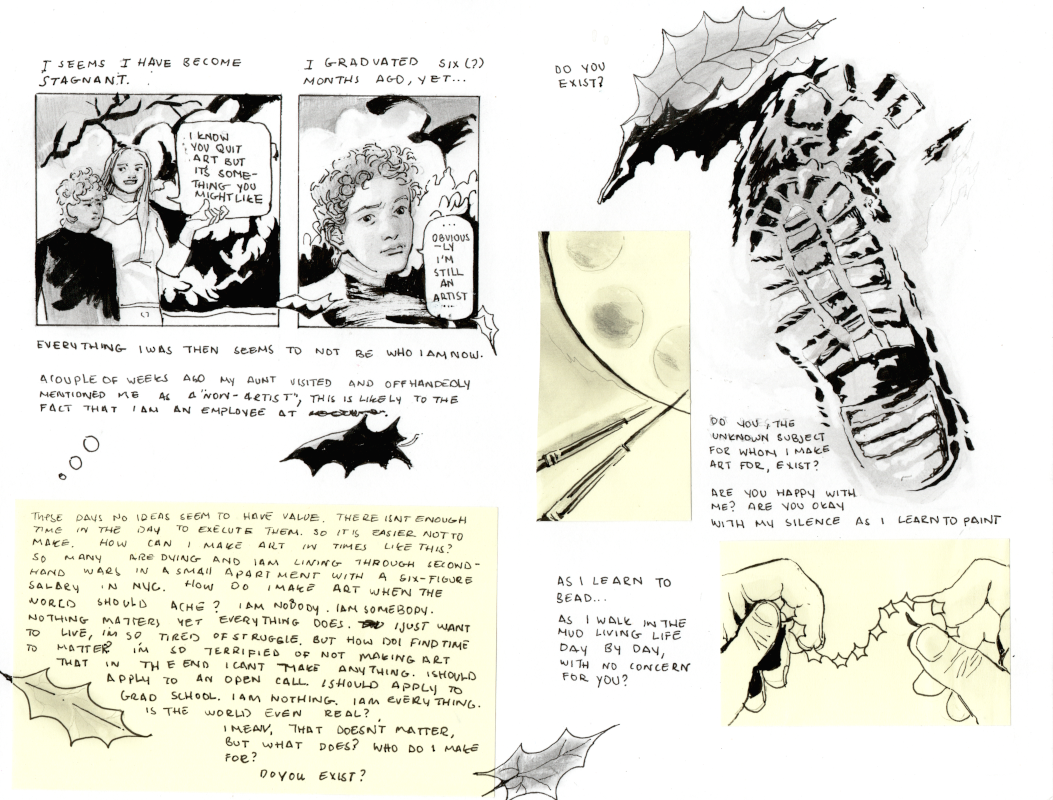 IT SEEMS I HAVE BECOME
STAGNANT.
I GRADUATED SIX(?)
MONTHS AGO, YET...
I KNOW
YOU QUIT
ART BUT
ITS SOME-
THING YOU
MIGHT LIKE
...
OBVIOUS
-LY
I'M
STILL
AN
ARTIST
...
EVERYTHING I WAS THEN SEEMS TO NOT BE WHO I AM NOW.
A COUPLE OF WEEKS AGO MY AUNT VISITED AND OFFHANDEDLY
MENTIONED ME AS A "NON-ARTIST", THIS IS LIKELY TO THE
FACT THAT I AM AN EMPLOYEE AT
THESE DAYS NO IDEAS SEEM TO HAVE VALUE. THERE ISNT ENOUGH
TIME IN THE DAY TO EXECUTE THEM. SO IT IS EASIER NOT TO
MAKE. HOW CAN I MAKE ART IN TIMES LIKE THIS?
SO MANY ARE DYING AND I AM LINING THROUGH SECOND-
HAND WARS IN A SMALL APARTMENT WITH A SIX-FIGURE
SALARY IN NYC. HOW DO I MAKE ART WHEN THE
WORLD SHOULD ACHE? I AM NOBODY. I AM SOMEBODY.
NOTHING MATTERS YET EVERYTHING DOES. I JUST WANT
TO LIVE, I'M SO TIRED OF STRUGGLE. BUT HOW DO I FIND TIME
TO MATTER? I'M SO TERRIFIED OF NOT MAKING ART
THAT IN THE END I CANT MAKE ANYTHING. I SHOULD
APPLY TO AN OPEN CALL. I SHOULD APPLY TO
GRAD SCHOOL. I AM NOTHING. I AM EVERYTHING.
IS THE WORLD EVEN REAL?
I MEAN, THAT DOESN'T MATTER,
BUT WHAT DOES? WHO DO I MAKE
FOR?
DO YOU EXIST?
DO YOU
EXIST?
DO YOU, THE
UNKNOWN SUBJECT
FOR WHOM I MAKE
ART FOR, EXIST?
ARE YOU HAPPY WITH
ME? ARE YOU OKAY
WITH MY SILENCE AS I LEARN TO PAINT
AS I LEARN TO
BEAD...
AS I WALK IN THE
MUD LIVING LIFE
DAY BY DAY,
WITH NO CONCERN
FOR YOU?